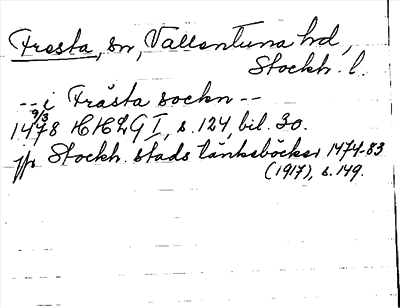 Fresta, sn, Vallentuna hd,
Stockh. l.
-- i Frästa sockn --
9/3
1478 HHLG I, s. 124, bil. 30.
jfr Stockh. stads tänkeböcker 1474-83
(1917), s. 149.